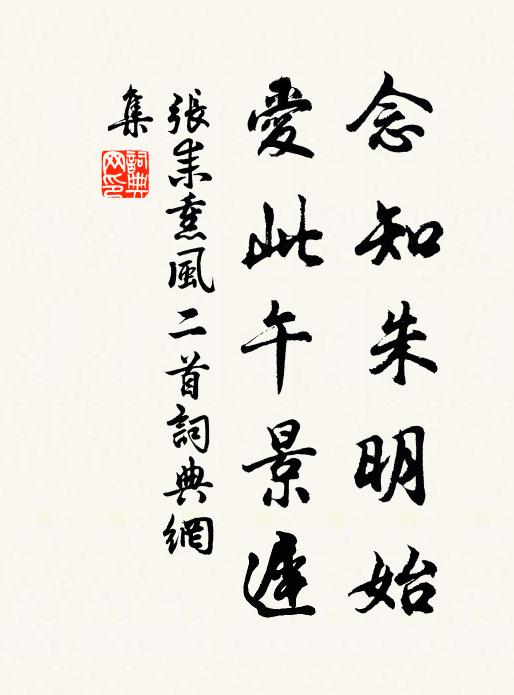 念知朱明始
愛此午景遲
張耒薰風二首詞典網
集
詞典
网印